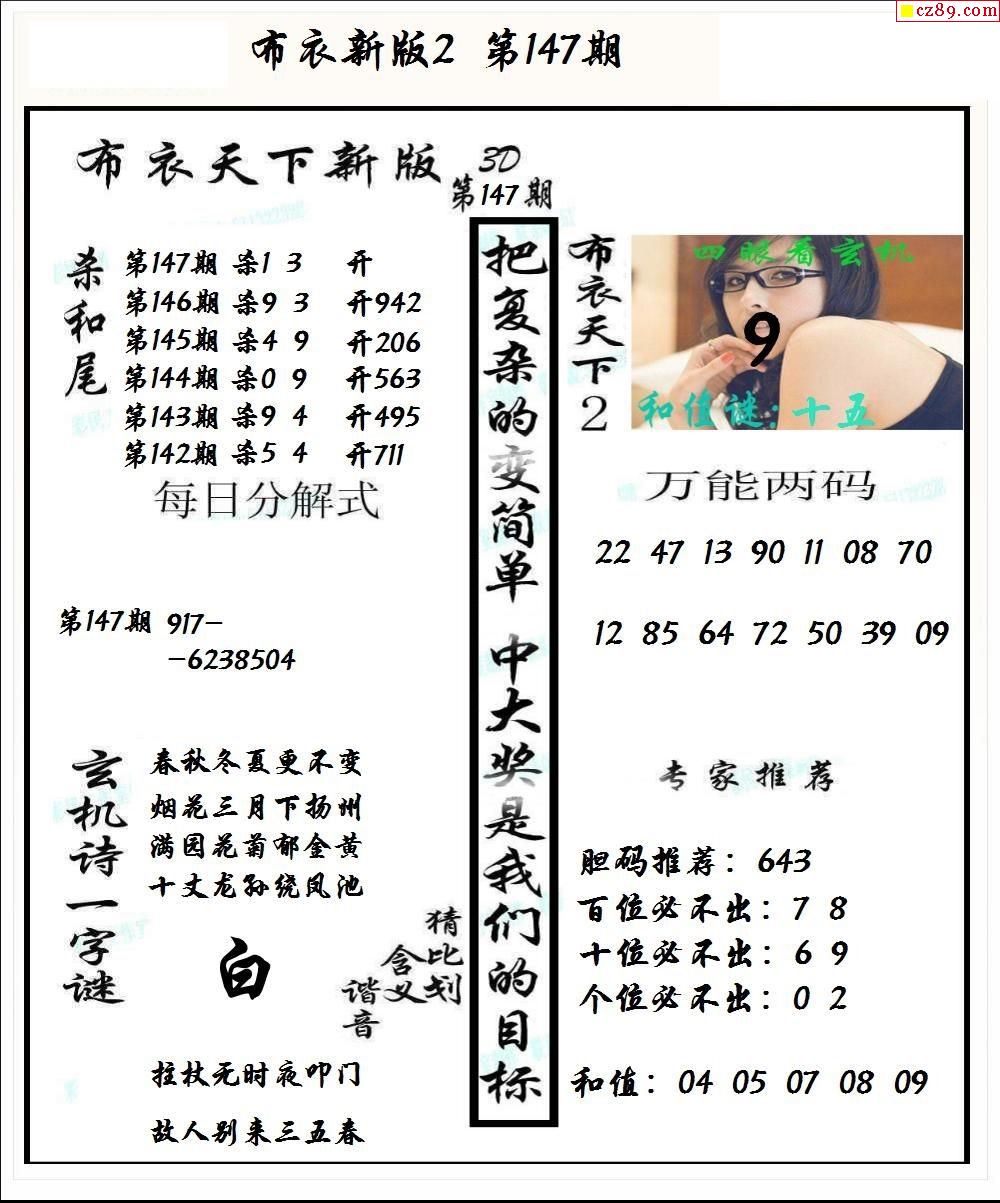 cz89.com
布衣新版2 第147期
布衣天下新版 3D
第147期
杀和尾
第147期 杀1 3 开
第146期 杀9 3 开942
第145期 杀4 9 开206
第144期 杀0 9 开563
第143期 杀9 4 开495
第142期 杀5 4 开711
每日分解式
第147期 917-
-6238504
玄机诗一字谜
春秋冬夏更不变
烟花三月下扬州
满园花菊郁金黄
十丈龙孙绕凤池
白
猜比划
含义
谐音
拄杖无时夜叩门
故人别来三五春
把复杂的变简单 中大奖是我们的目标
布衣天下2
四眼看玄机
9
和值谜:十五
万能两码
22 47 13 90 11 08 70
12 85 64 72 50 39 09
专家推荐
胆码推荐：643
百位必不出：7 8
十位必不出：6 9
个位必不出：0 2
和值：04 05 07 08 09